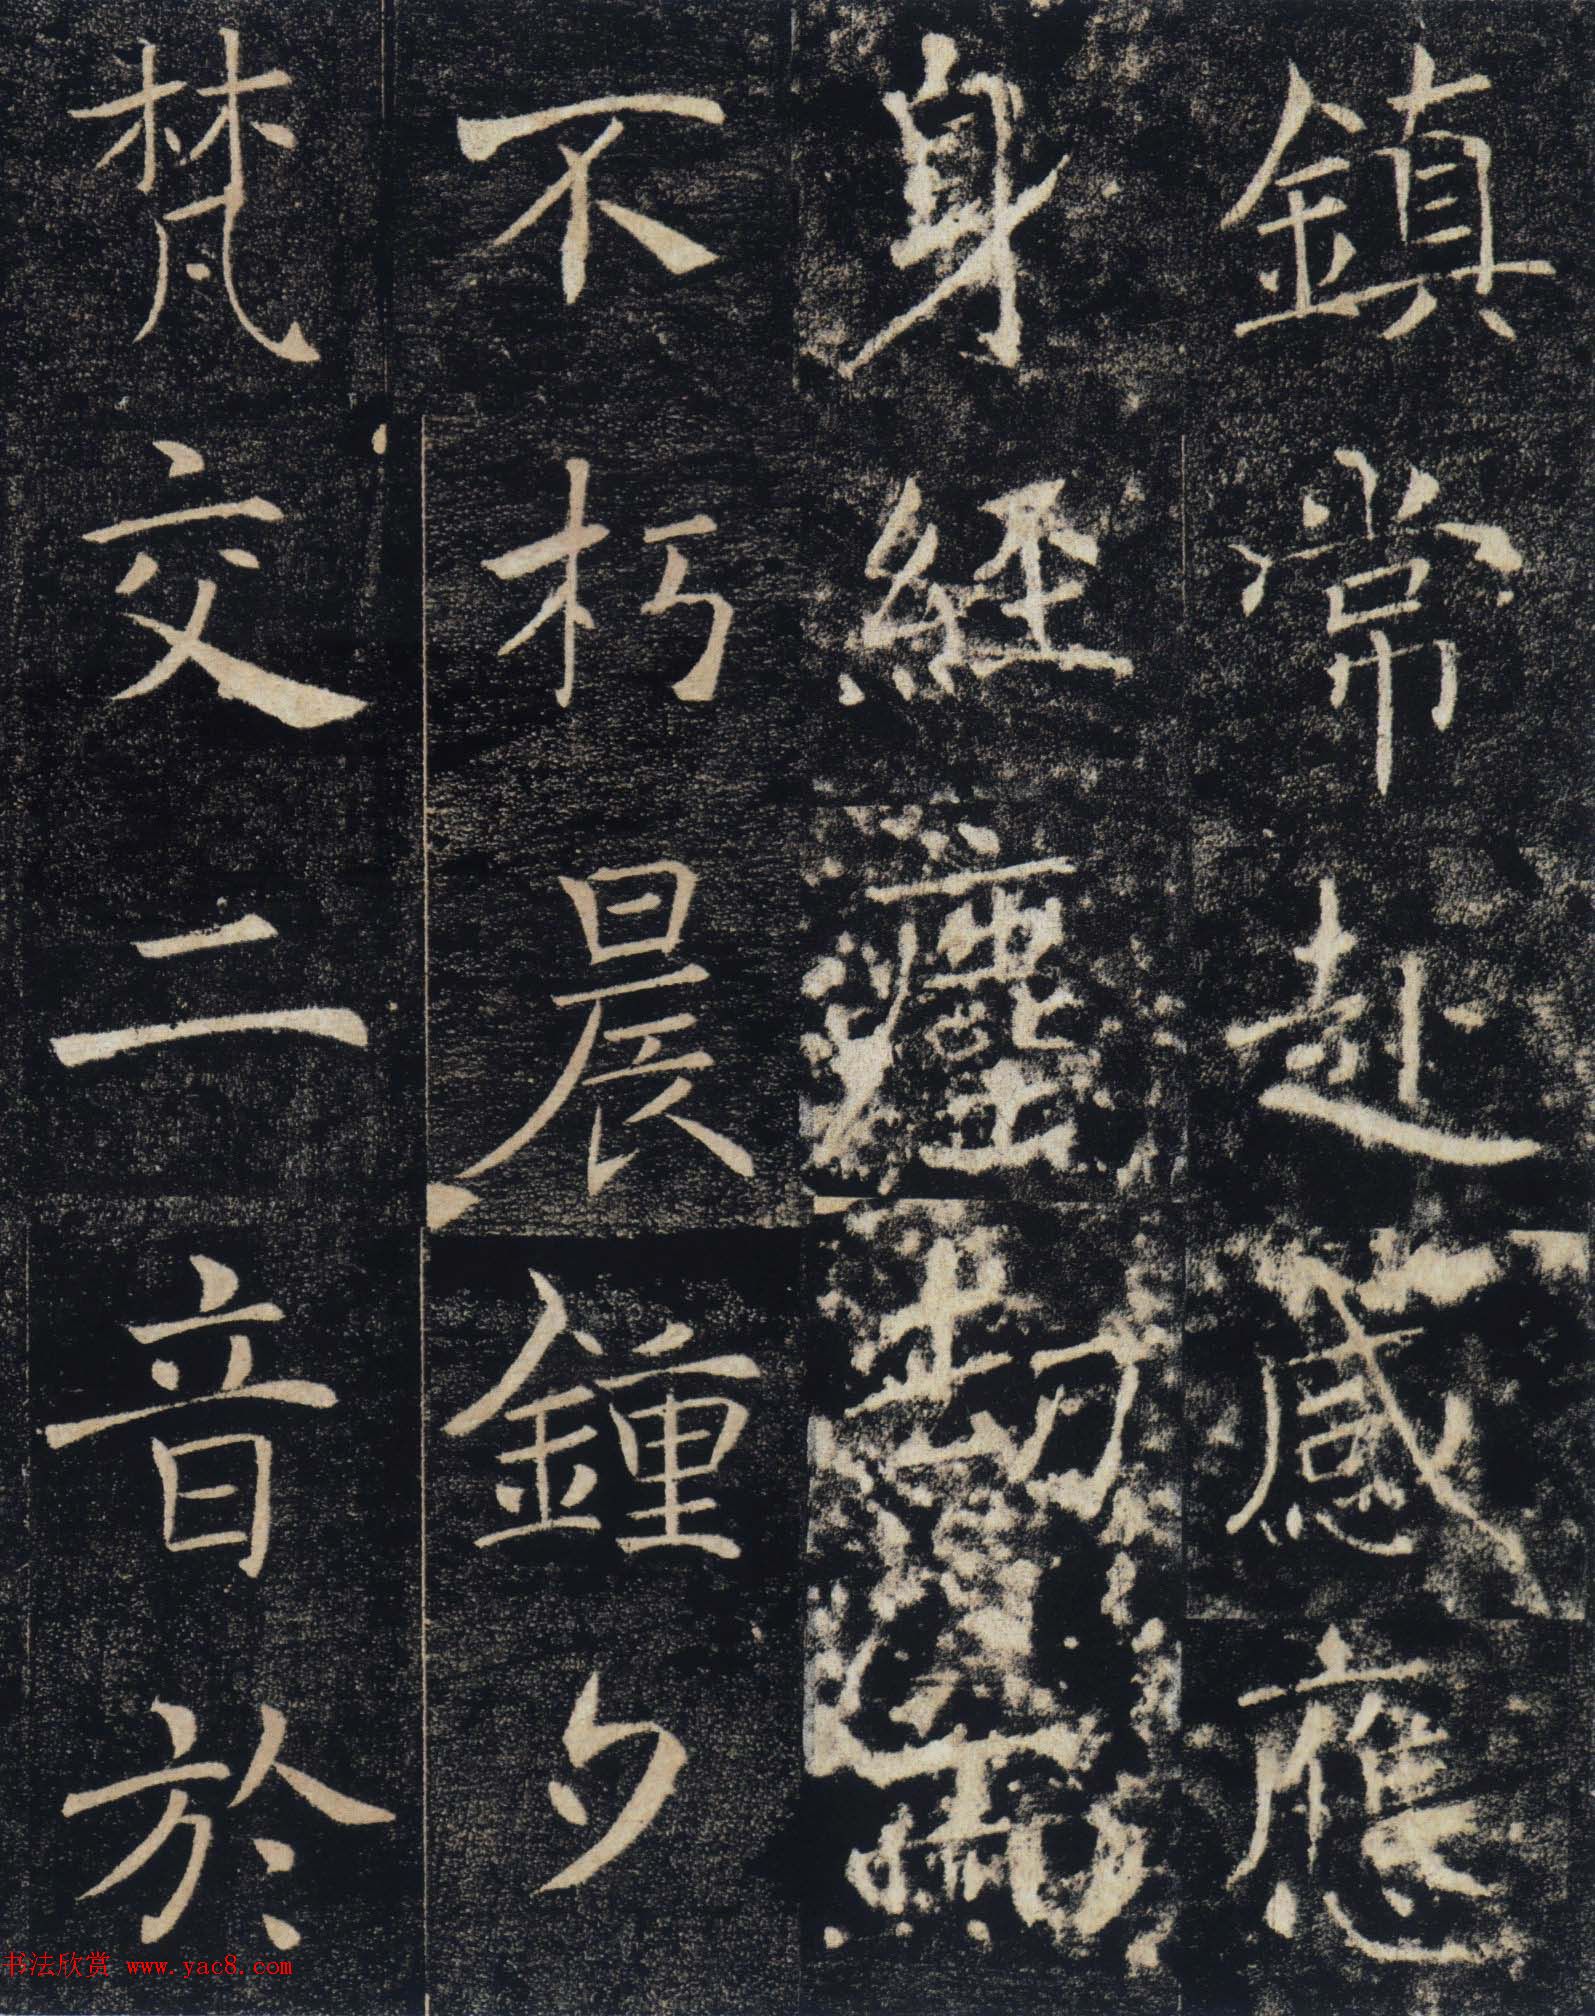 鎮常赴感應
身經塵劫而
不朽晨鐘夕
梵交二音於
书法欣赏 www.yac8.com